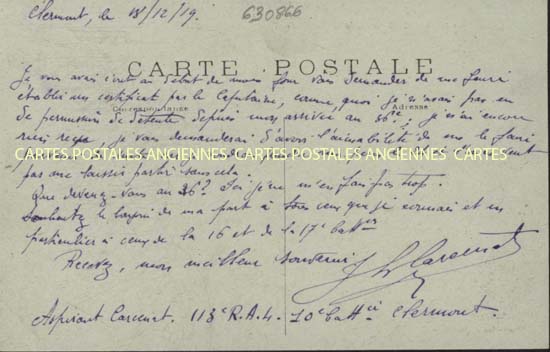 Clermont, le 13/12/19.
630866
CARTE POSTALE
Je vous avais écrit au début du mois pour vous demander de me faire
établir un certificat par le Capitaine, comme quoi je n'avais pas eu
Correspondance
Adresse
de permission de détente depuis mon arrivée au 36ème; je n'ai encore
rien reçu, je vous demanderai d'avoir l'amabilité de me le faire
CARTES POSTALES ANCIENNES CARTES POSTALES ANCIENNES CARTES
pas me laisser partir sans cela.
Que devenez-vous au 36? Ici je ne m'en fais pas trop.
Souhaitez le bonjour de ma part à tous ceux que je connais et en
particulier à ceux de la 16 et de la 17e batt.ies
Recevez, mon meilleur souvenir
Aspirant 113e R.A.L. 10e batt.ie Clermont.